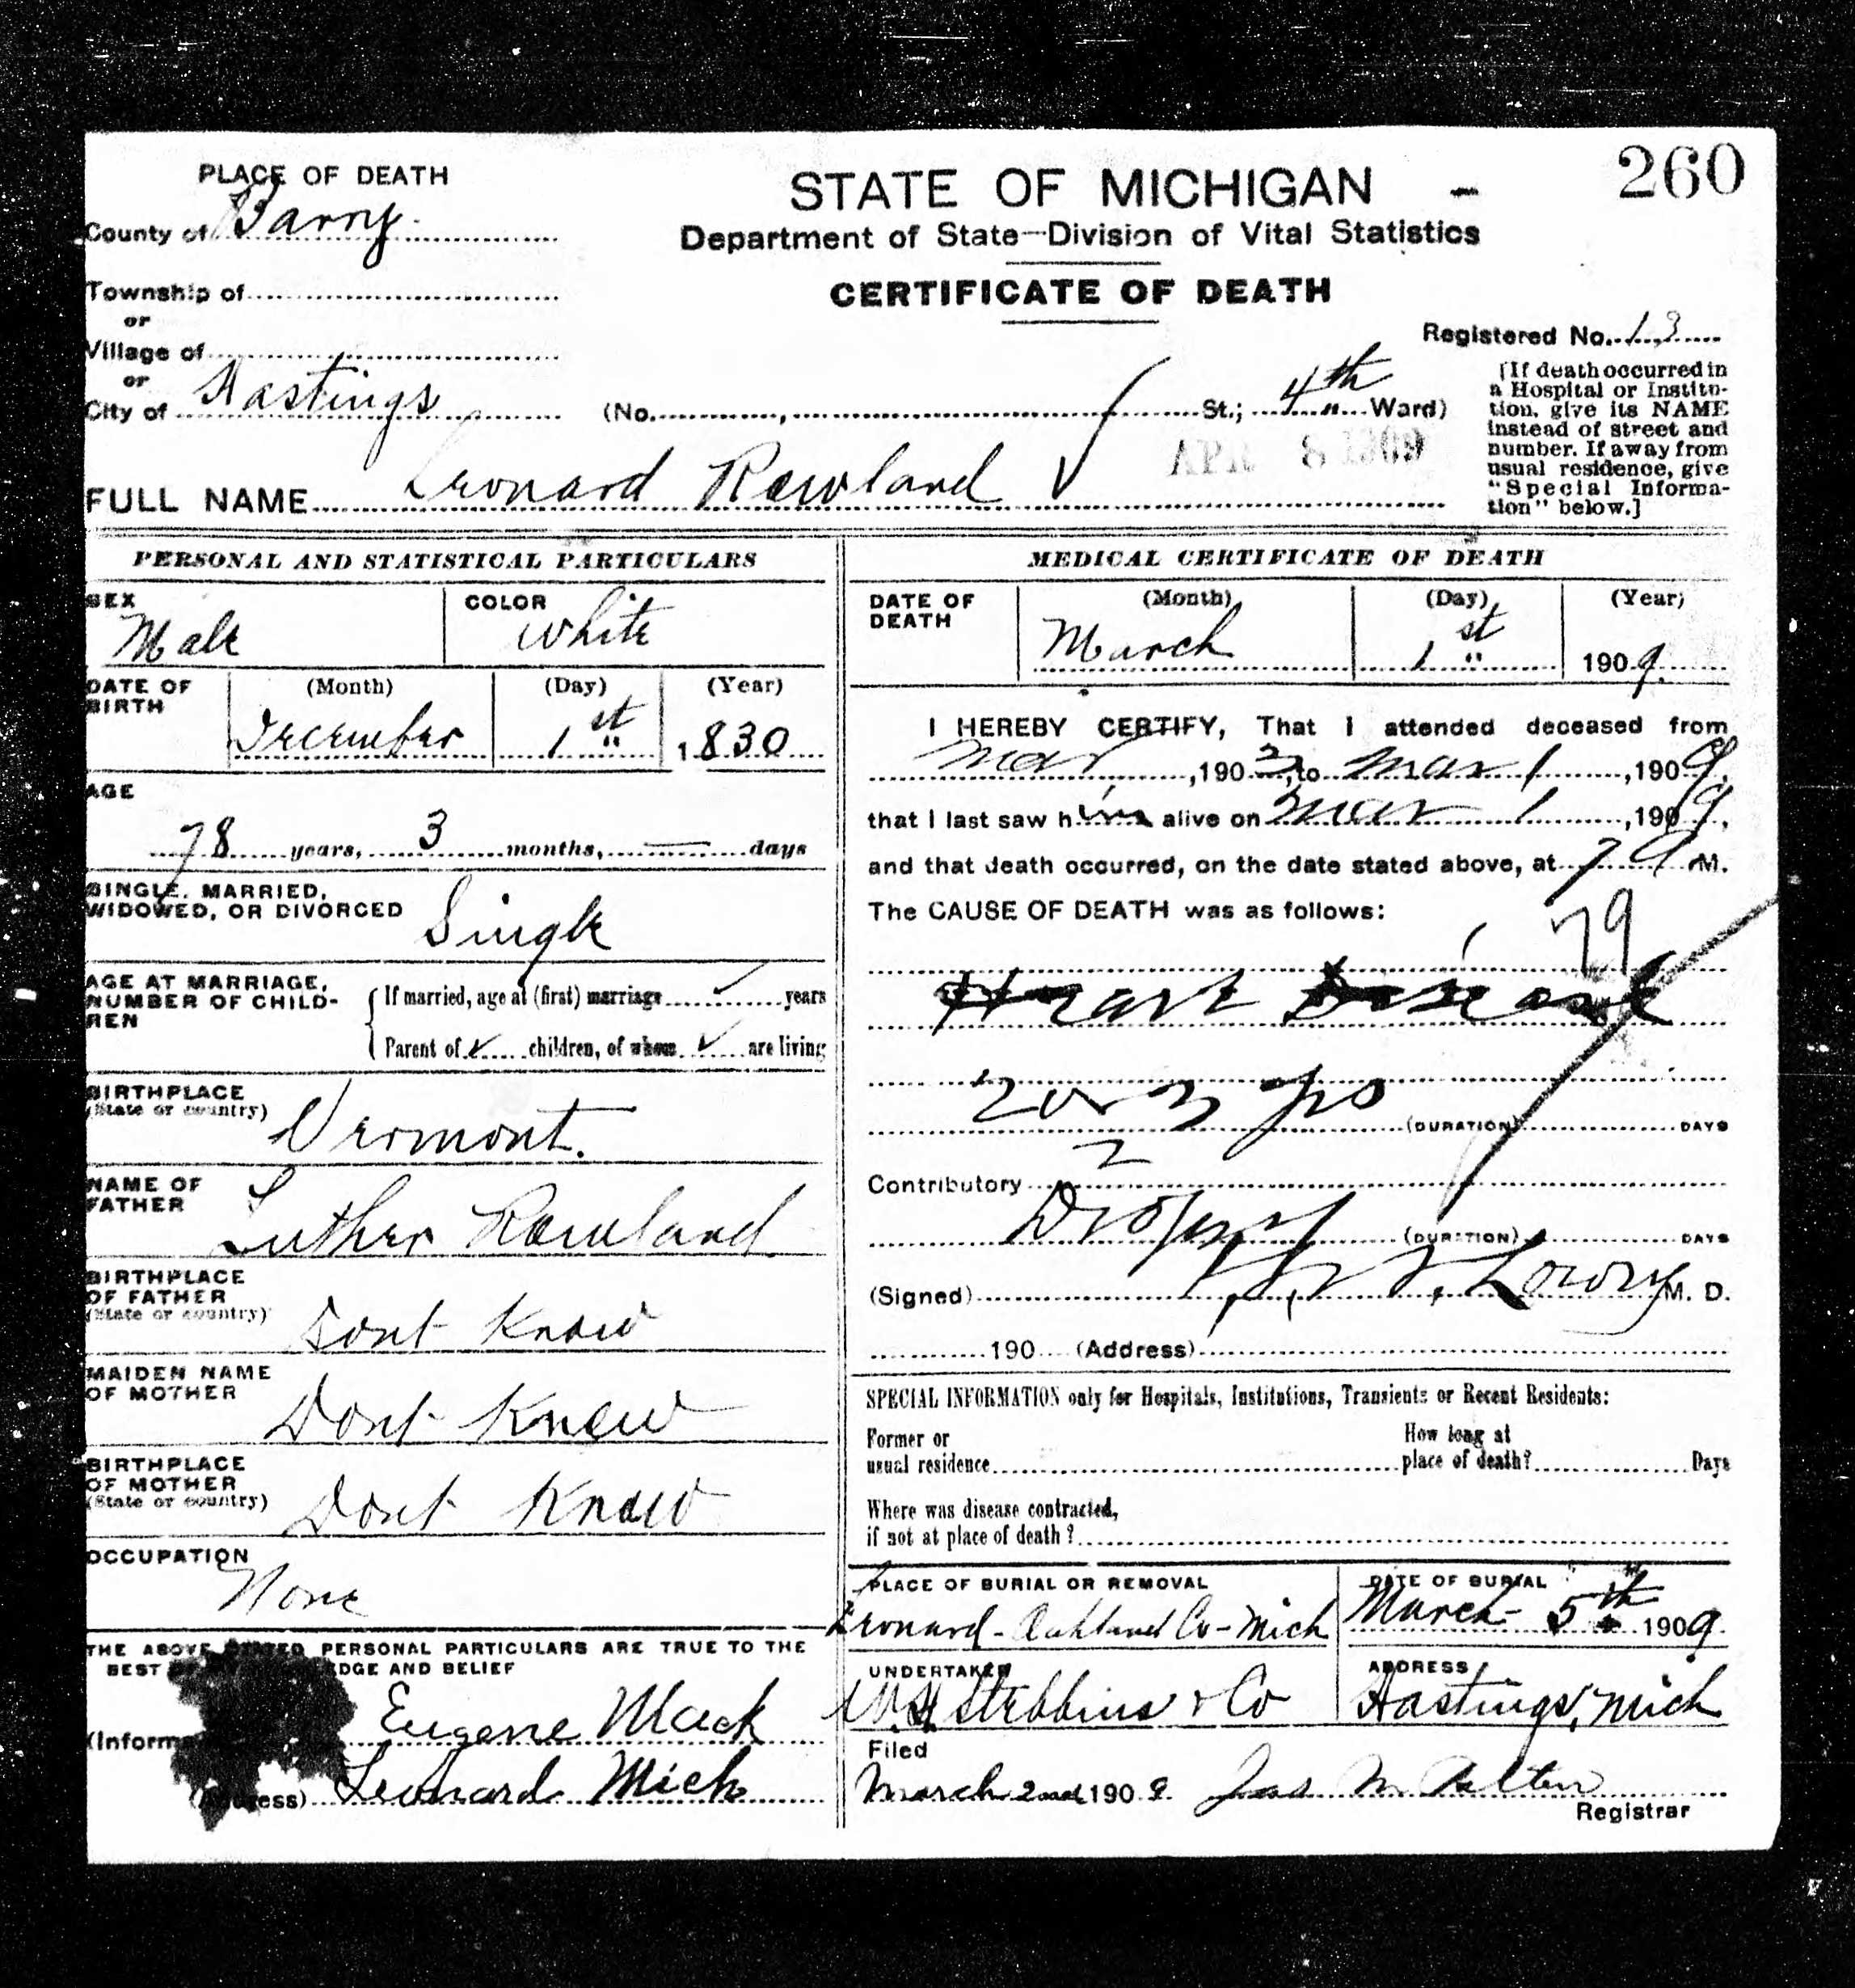 260
PLACE OF DEATH
County of Barry
Township of
or
Village of
or
City of Hastings
STATE OF MICHIGAN
Department of State—Division of Vital Statistics
CERTIFICATE OF DEATH
Registered No. 13
(No. , St.; 4th Ward)
[If death occurred in
a Hospital or Institu-
tion, give its NAME
instead of street and
number. If away from
usual residence, give
"Special Informa-
tion" below.]
APR 8 1909
FULL NAME Leonard Rowland
PERSONAL AND STATISTICAL PARTICULARS
SEX Male
COLOR White
DATE OF BIRTH
(Month) (Day) (Year)
December 1st 1830
AGE
78 years, 3 months, — days
SINGLE, MARRIED,
WIDOWED, OR DIVORCED Single
AGE AT MARRIAGE,
NUMBER OF CHILD-
REN
If married, age at (first) marriage ✓ years
Parent of ✓ children, of whom ✓ are living
BIRTHPLACE
(State or country) Vermont.
NAME OF
FATHER Luther Rowland
BIRTHPLACE
OF FATHER
(State or country) Dont Know
MAIDEN NAME
OF MOTHER Dont Know
BIRTHPLACE
OF MOTHER
(State or country) Dont Know
OCCUPATION
None
THE ABOVE STATED PERSONAL PARTICULARS ARE TRUE TO THE
BEST EDGE AND BELIEF
(Informa Eugene Mack
(Address) Leonard Mich
MEDICAL CERTIFICATE OF DEATH
DATE OF DEATH
(Month) (Day) (Year)
March 1st 1909.
I HEREBY CERTIFY, That I attended deceased from
mar , 190 , to mar 1 , 1909.
that I last saw him alive on mar 1 , 1909.
and that death occurred, on the date stated above, at 7 a M.
The CAUSE OF DEATH was as follows:
79
Heart Disease
2 or 3 yrs
(DURATION) DAYS
2
Contributory
Dropsy (DURATION) DAYS
(Signed) Lowry M. D.
190 (Address)
SPECIAL INFORMATION only for Hospitals, Institutions, Transients or Recent Residents:
Former or
usual residence
How long at
place of death? Days
Where was disease contracted,
if not at place of death?
PLACE OF BURIAL OR REMOVAL
Leonard - Oakland Co - Mich
DATE OF BURIAL
March 5th 1909.
UNDERTAKER
W.H. Stebbins & Co
ADDRESS
Hastings, Mich
Filed
March 2nd 1909. Jas M
Registrar